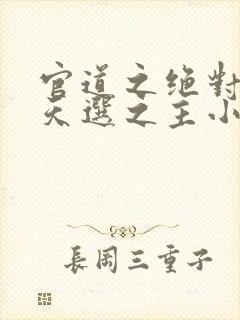 官道之绝對
天選之主小
長岡三重子